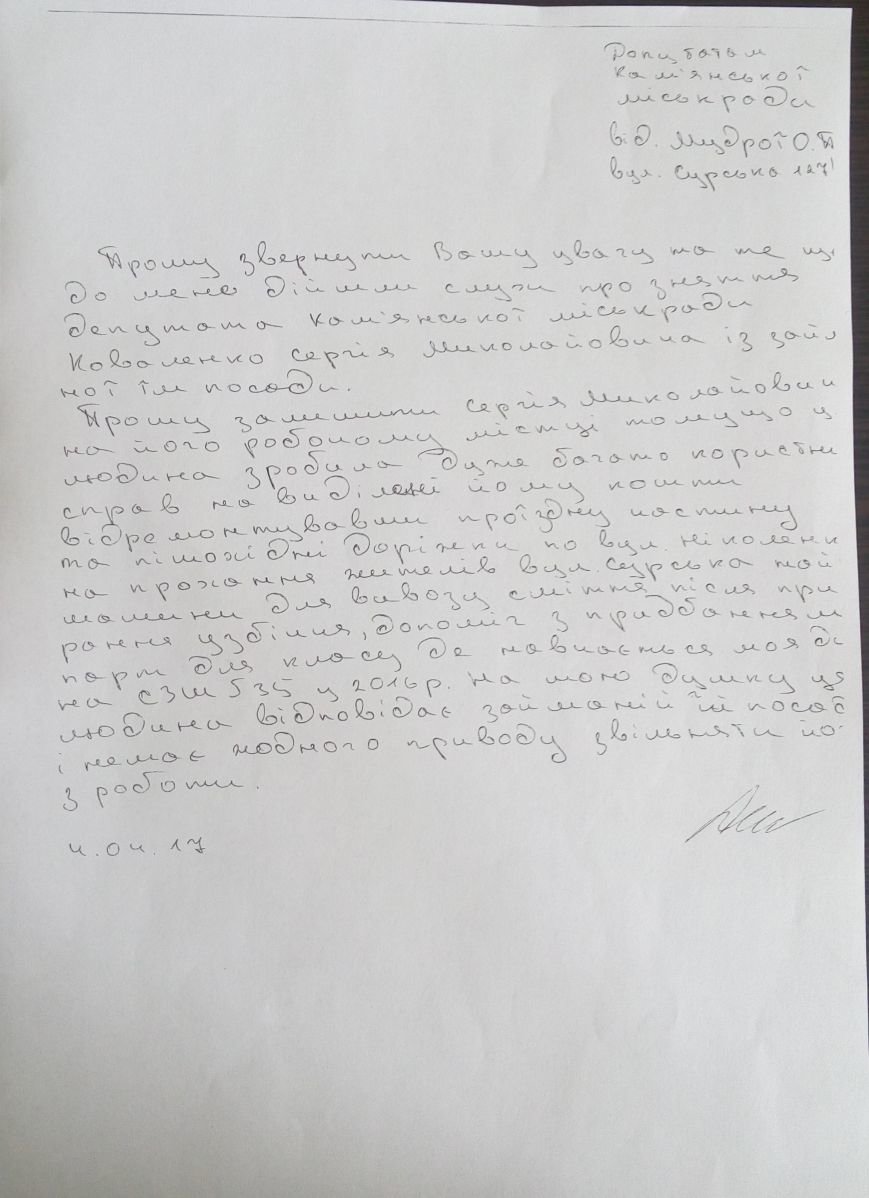 Допутатам
Кам'янської
міськради
від. Мудрої О.П
вул. Сурська 127
Прошу звернути Вашу увагу та те що
до мене дійшли слухи про зняття
депутата Кам'янської міськради
Коваленко Сергія Миколайовича із займ
ної їм посади.
Прошу залишити Сергія Миколайович
на його робочому місці томущо ц
людина зробила дуже багато користни
справ на виділені йому кошти
відремонтувавши проїздну частину
та пішохідні доріжки по вул. Ніколенк
на прохання жителів вул. Сурська най
машини для вивозу сміття після при
рання узбіччя, допоміг з придбанням
парт для класу де навчається моя до
на СЗШ §35 у 2016р. На мою думку ця
людина відповідає займаній їй посад
і немає жодного приводу звільняти йо
з роботи.
4.04.17